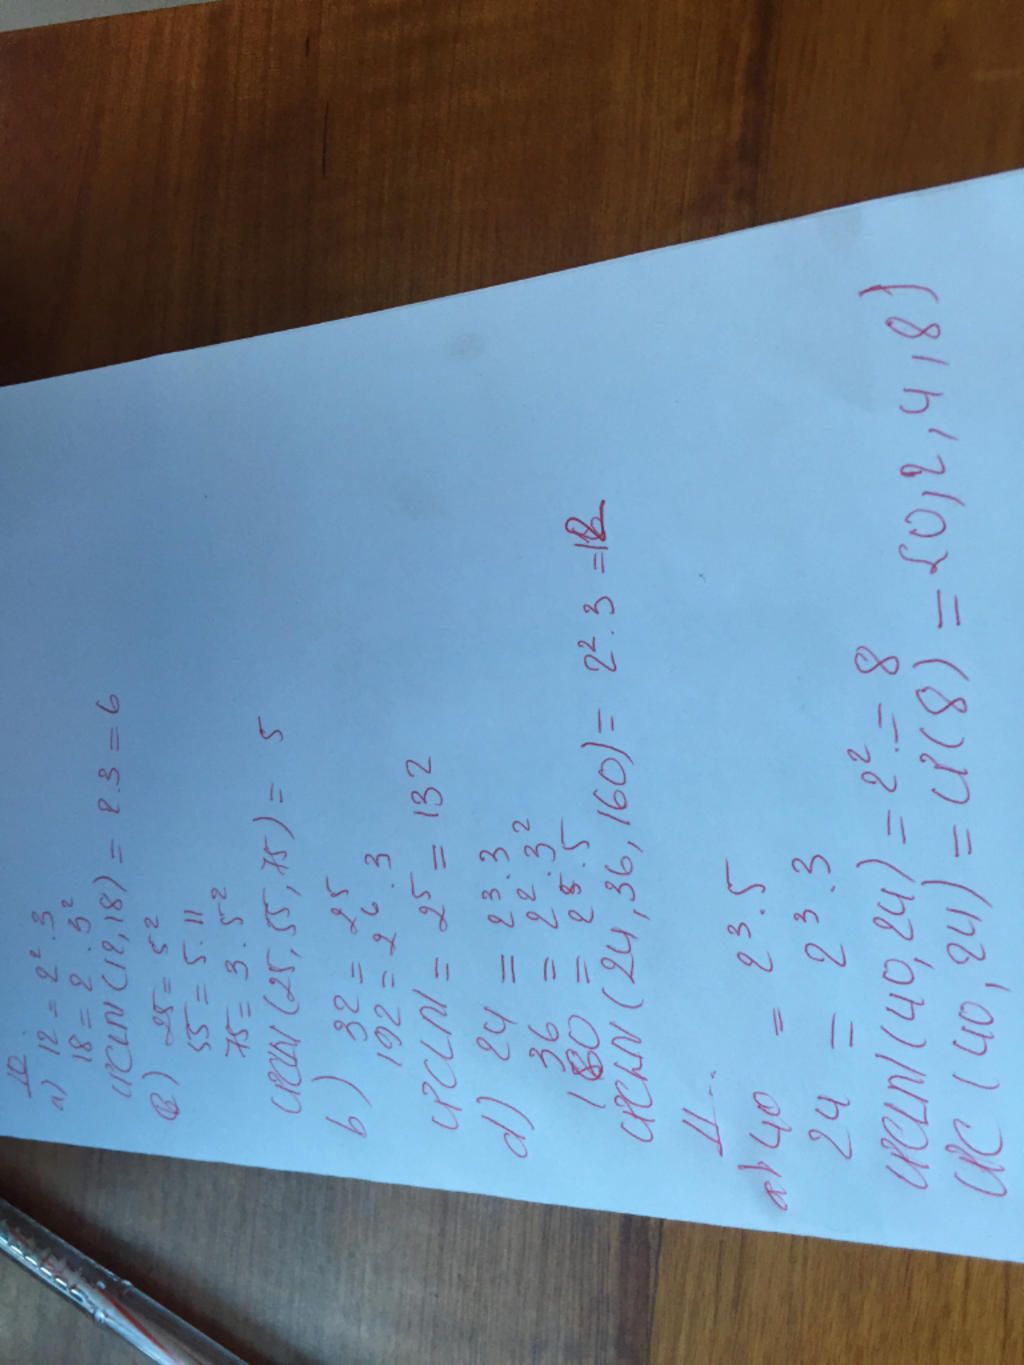 10
a) 12 = 2² · 3
18 = 2 · 3²
(12, 18) = 2 · 3 = 6
25 = 5²
55 = 5 · 11
75 = 3 · 5²
(25, 55, 75) = 5
b) 32 = 2⁵
192 = 2⁶ · 3
= 2⁵ = 132
d) 24 = 2³ · 3
36 = 2² · 3²
= 2⁵ · 5
(24, 36, 160) = 2² · 3 = 12
11
a) 40 = 2³ · 5
24 = 2³ · 3
(40, 24) = 2² = 8
(40, 24) = (8) = 20, 2, 4, 8)